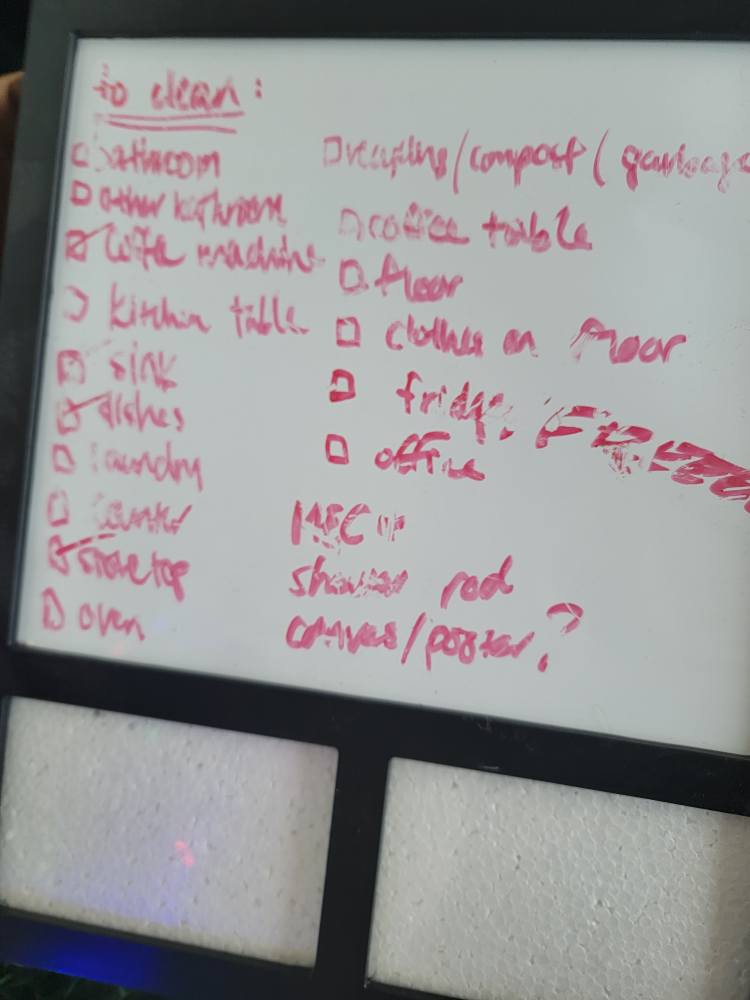 to clean:
bathroom
other bathroom
coffee machine
kitchen table
sink
dishes
laundry
counter
stovetop
oven
recycling/compost/garbage
coffee table
floor
clothes on floor
fridge,
office
shower rod
canvas/poster?